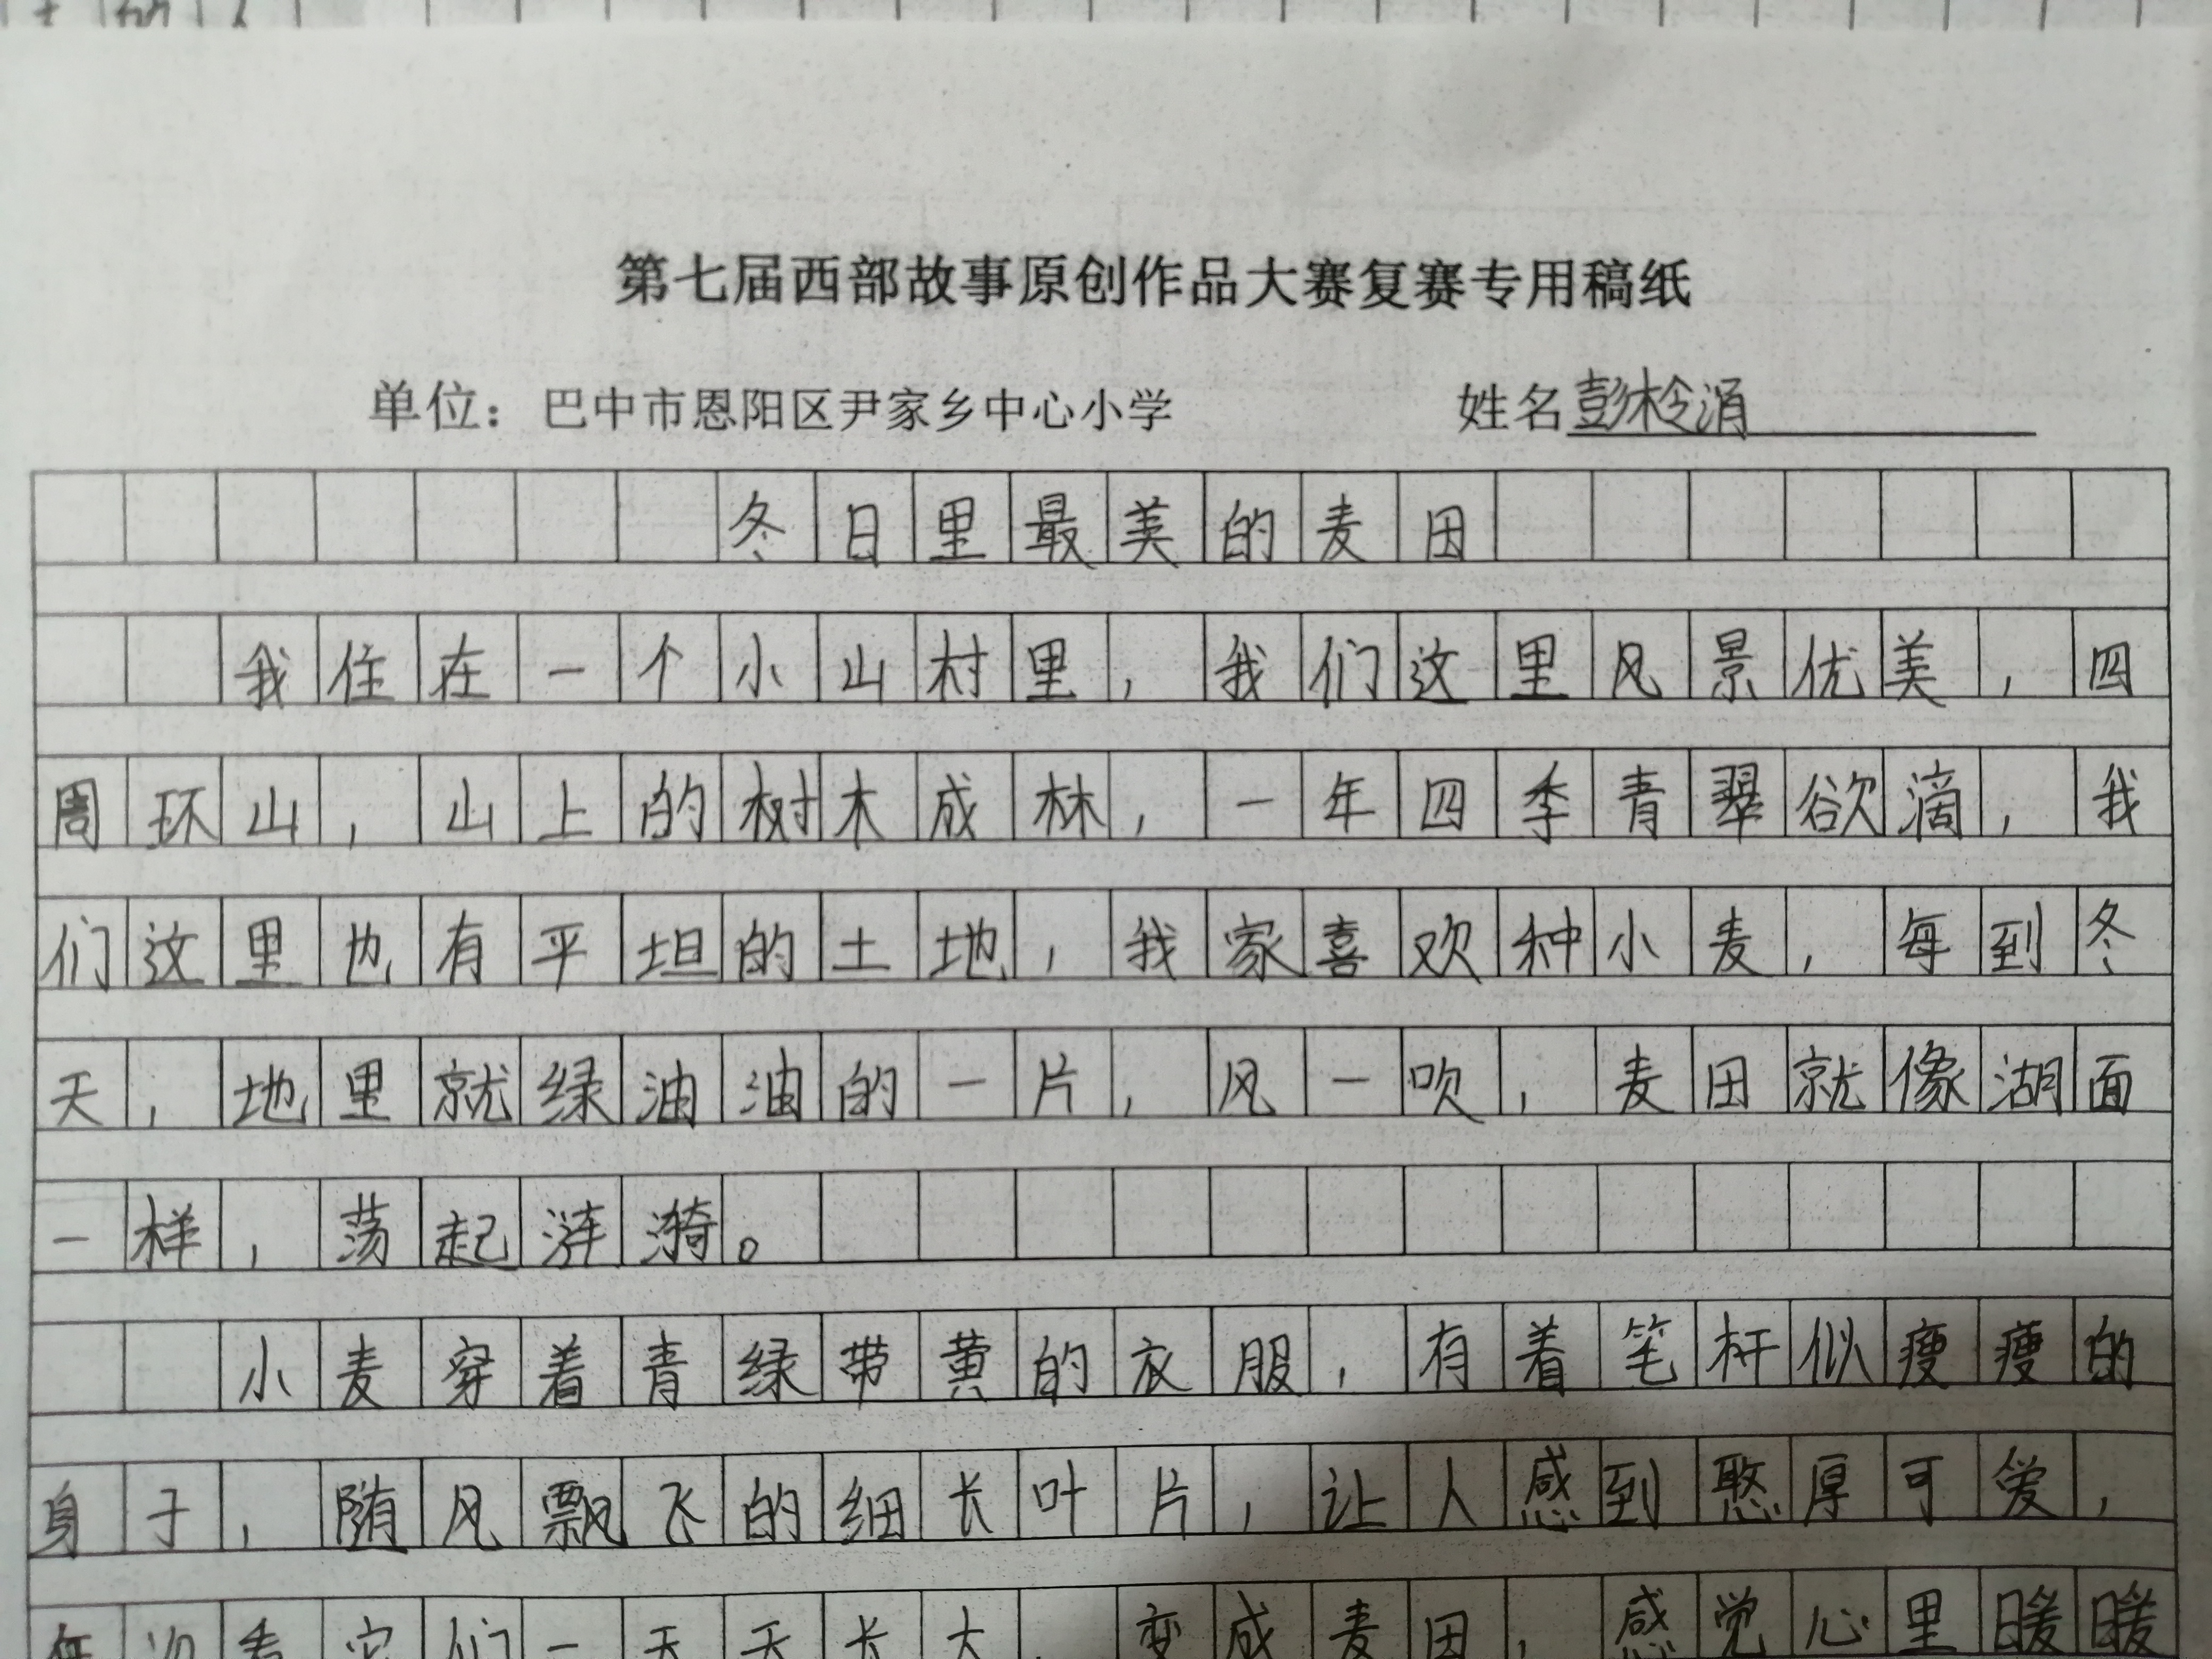 第七届西部故事原创作品大赛复赛专用稿纸
单位：巴中市恩阳区尹家乡中心小学 姓名彭柃涓
冬日里最美的麦田
我住在一个小山村里，我们这里风景优美，四
周环山，山上的树木成林，一年四季青翠欲滴，我
们这里也有平坦的土地，我家喜欢种小麦，每到冬
天，地里就绿油油的一片，风一吹，麦田就像湖面
一样，荡起涟漪。
小麦穿着青绿带黄的衣服，有着笔杆似瘦瘦的
身子，随风飘飞的细长叶片，让人感到憨厚可爱，
每次看它们一天天长大，变成麦田，感觉心里暖暖